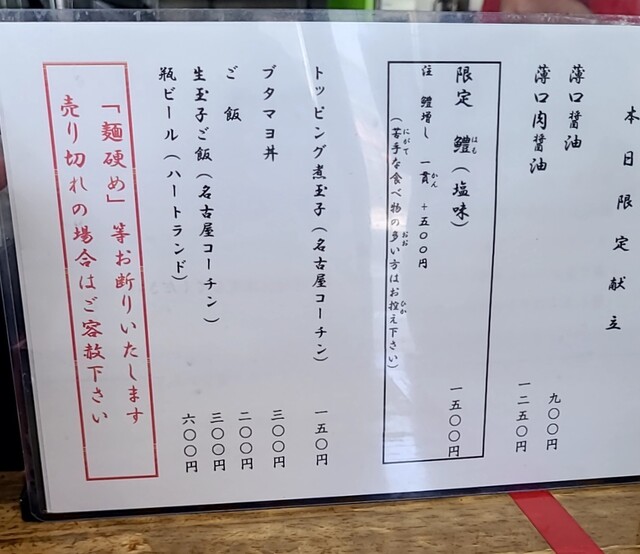 本日限定献立
薄口醤油 九〇〇円
薄口肉醤油 一二五〇円
限定 鱧(はも)(塩味) 一五〇〇円
注 鱧増し 一貫(かん) +五〇〇円
(苦手(にがて)な食べ物の多(おお)い方はお控(ひか)え下さい)
トッピング煮玉子(名古屋コーチン) 一五〇円
ブタマヨ丼 三〇〇円
ご飯 二〇〇円
生玉子ご飯(名古屋コーチン) 三〇〇円
瓶ビール(ハートランド) 六〇〇円
「麺硬め」等お断りいたします
売り切れの場合はご容赦下さい